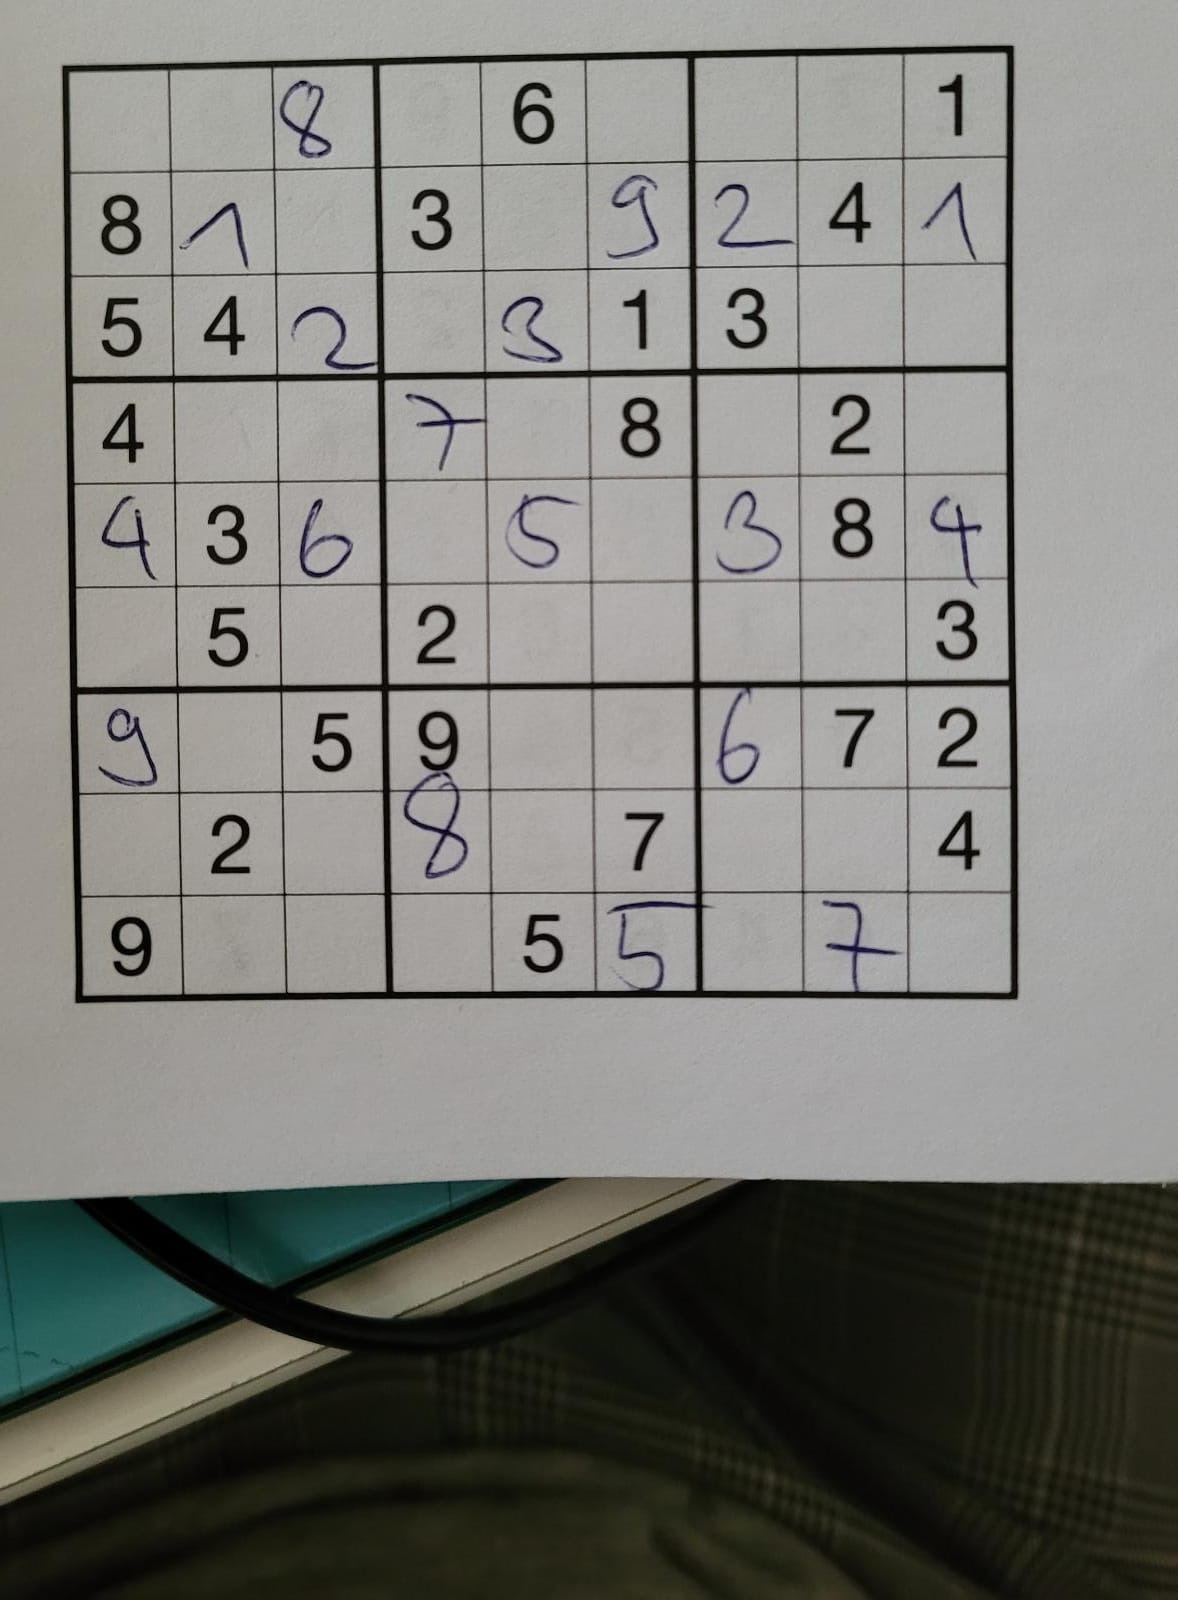 8 6 1
8 1 3 9 2 4 1
5 4 2 3 1 3
4 7 8 2
4 3 6 5 3 8 4
5 2 3
9 5 9 6 7 2
2 8 7 4
9 5 5 7